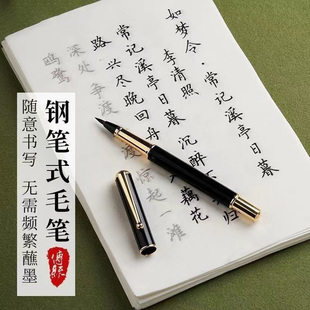 如梦令·常记溪亭日暮
李清照
常记溪亭日暮 沉醉
归
路 兴尽晚回舟
藕花
深处 争渡
惊起一滩
鸥鹭
钢笔式毛笔
随意书写 无需频繁蘸墨